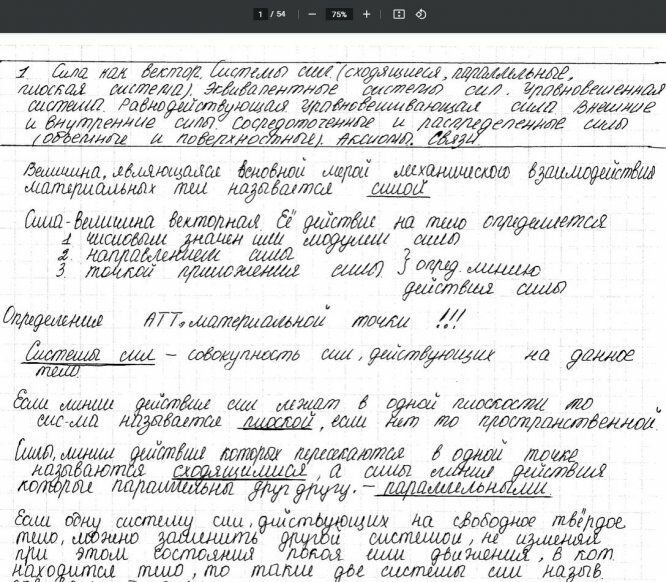 1 / 54 − 75% +
1. Сила как вектор. Системы сил (сходящиеся, параллельные,
плоская система). Эквивалентные системы сил. Уравновешенная
система. Равнодействующая уравновешивающая сила. Внешние
и внутренние силы. Сосредоточенные и распределенные силы
(объемные и поверхностные). Аксиомы. Связи.
Величина, являющаяся основной мерой механического взаимодействия
материальных тел называется силой
Сила - величина векторная. Её действие на тело определяется
1. числовым значен или модулем силы
2. направлением силы
3. точкой приложения силы } опред. линию
действия силы
Определения АТТ, материальной точки !!!
Системы сил – совокупность сил, действующих на данное
тело
Если линие действие сил лежат в одной плоскости то
сис-ма называется плоской, если нет то пространственной.
Силы, линии действие которых пересекаются в одной точке
называются сходящимися, а силы линие действия
которые параллельны друг другу. – параллельными
Если одну систему сил, действующих на свободное твёрдое
тело, можно заменить другой системой, не изменяя
при этом состояния покоя или движения, в кот.
находится тело, то такие две системы сил назыв.